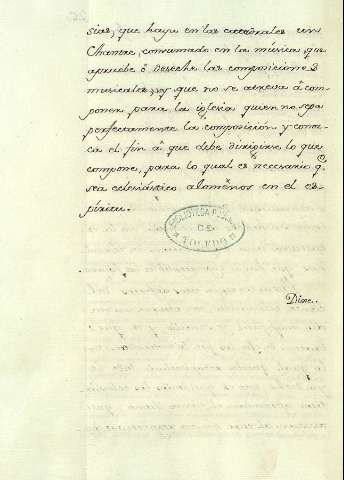 sias, que haya en las catedrales un
Chantre, consumado en la música, que
apruebe ó deseche las composiciones
musicales, y que no se atreva á com-
poner para la iglesia quien no sepa
perfectamente la composición y conoz-
ca el fin á que debe dirigirse lo que
compone, para lo qual es necesario q.e
sea eclesiástico alomenos en el es-
píritu.
BIBLIOTECA
DE
TOLEDO
Dixe.